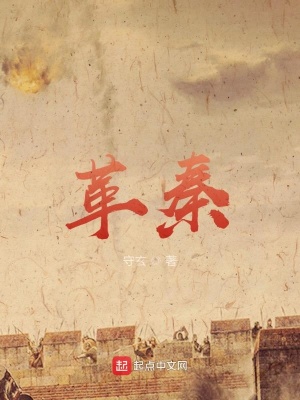 革秦
守玄、著
起 起点中文网